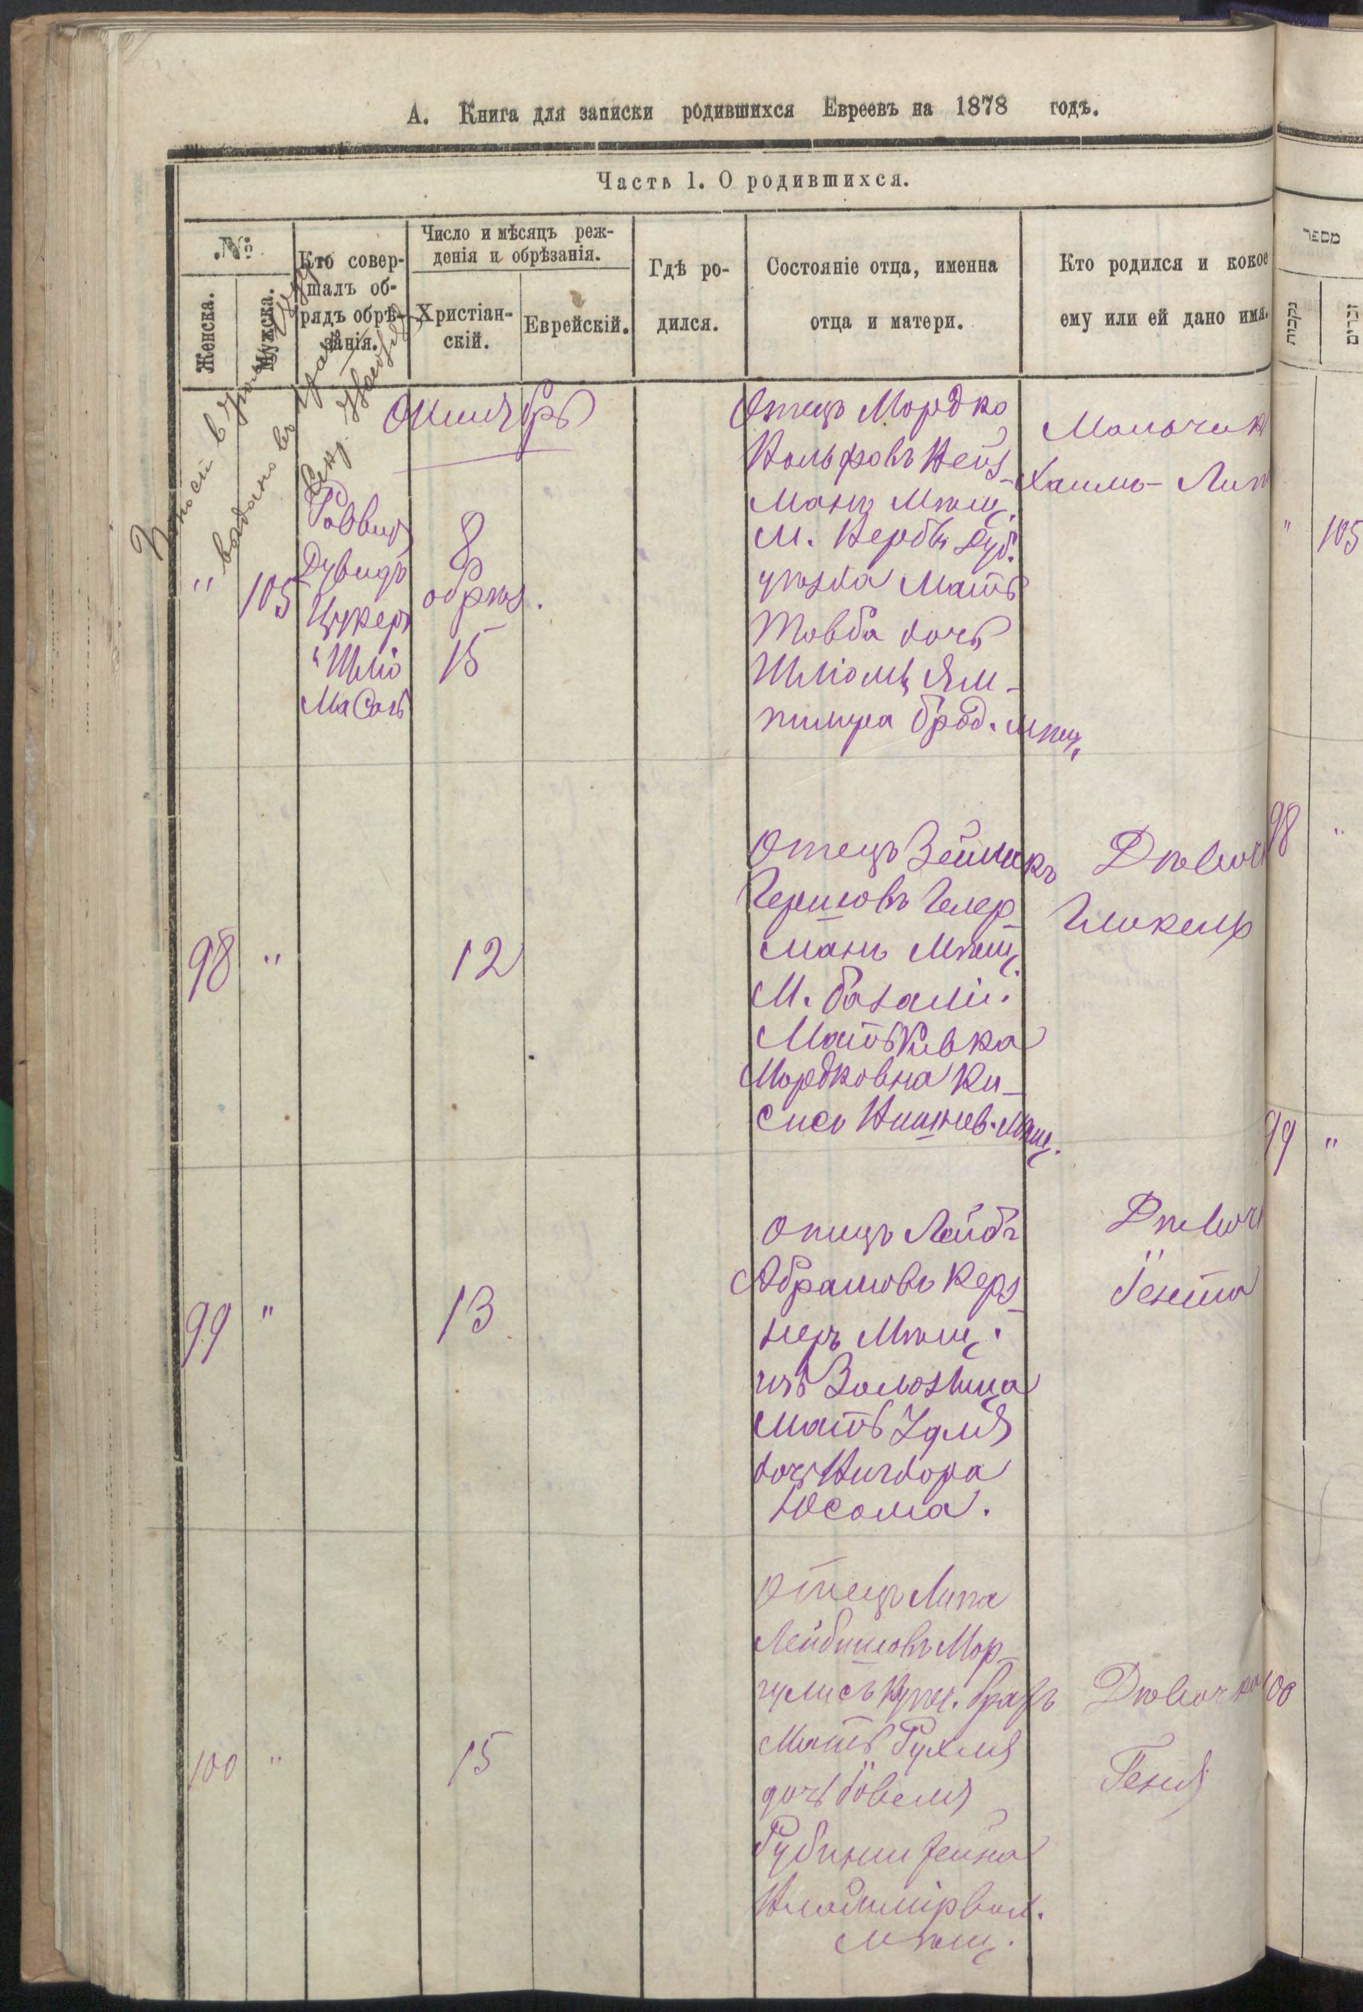 А. Книга для записки родившихся Евреевъ на 1878 годъ.
Часть 1. О родившихся.
№
Женска.
Мужска.
Кто совер-
шалъ об-
рядъ обрѣ-
занія.
Число и мѣсяцъ рож-
денія и обрѣзанія.
Христіан-
скій.
Еврейскій.
Гдѣ ро-
дился.
Состояніе отца, именна
отца и матери.
Кто родился и кокое
ему или ей дано имя.
Октябрь
" 105
Раввин
Дувидъ
Цукеръ
8
обрѣз.
15
Отецъ Мордко
Вольфовъ Вейз-
манъ Мѣщ.
М. Верби Дуб.
уѣзда Мать
Товба дочь
Шліомы Ям-
пилера Брод. мѣщ.
Мальчик
Хаимъ-Лип
98 "
12
Отецъ Зейликъ
Гершовъ Гелер-
манъ Мѣщ.
М. Базаліи.
Мать Ривка
Мордковна Ки-
сись Вишнев. Мѣщ.
Дѣвоч
Гликель
99 "
13
Отецъ Лейбъ
Абрамовъ Керз-
неръ Мѣщ.
изъ Заложица
Мать Удля
дочь Вигдора
Юсома.
Дѣвоч
Гента
100 "
15
Отецъ Липа
Лейбишовъ Мар-
гулисъ Купец. братъ
Мать Рухля
дочь Іовеля
Рубинштейна
Владимірвол.
мѣщ.
Дѣвочка
Геня
מספר
נקבות
זכרים
" 105
98 "
99 "
100